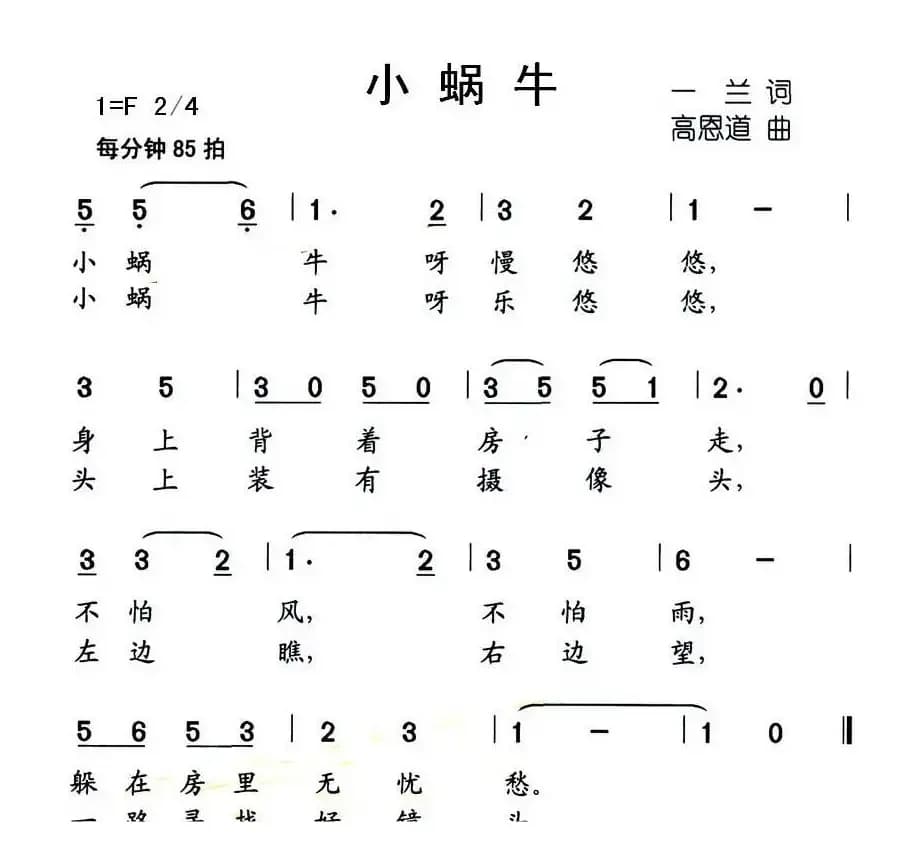 小蜗牛
1=F 2/4
一兰词
高恩道 曲
每分钟85拍
5 5 6 | 1· 2 | 3 2 | 1 - |
小蜗 牛 呀慢悠 悠,
小蜗 牛 呀乐悠 悠,
3 5 | 3 0 5 0 | 3 5 5 1 | 2· 0 |
身上背着房子走,
头上装有摄像头,
3 3 2 | 1· 2 | 3 5 | 6 - |
不怕 风, 不怕雨,
左边 瞧, 右边望,
5 6 5 3 | 2 3 | 1 - | 1 0 ‖
躲在房里无忧愁。
一路寻找好镜头